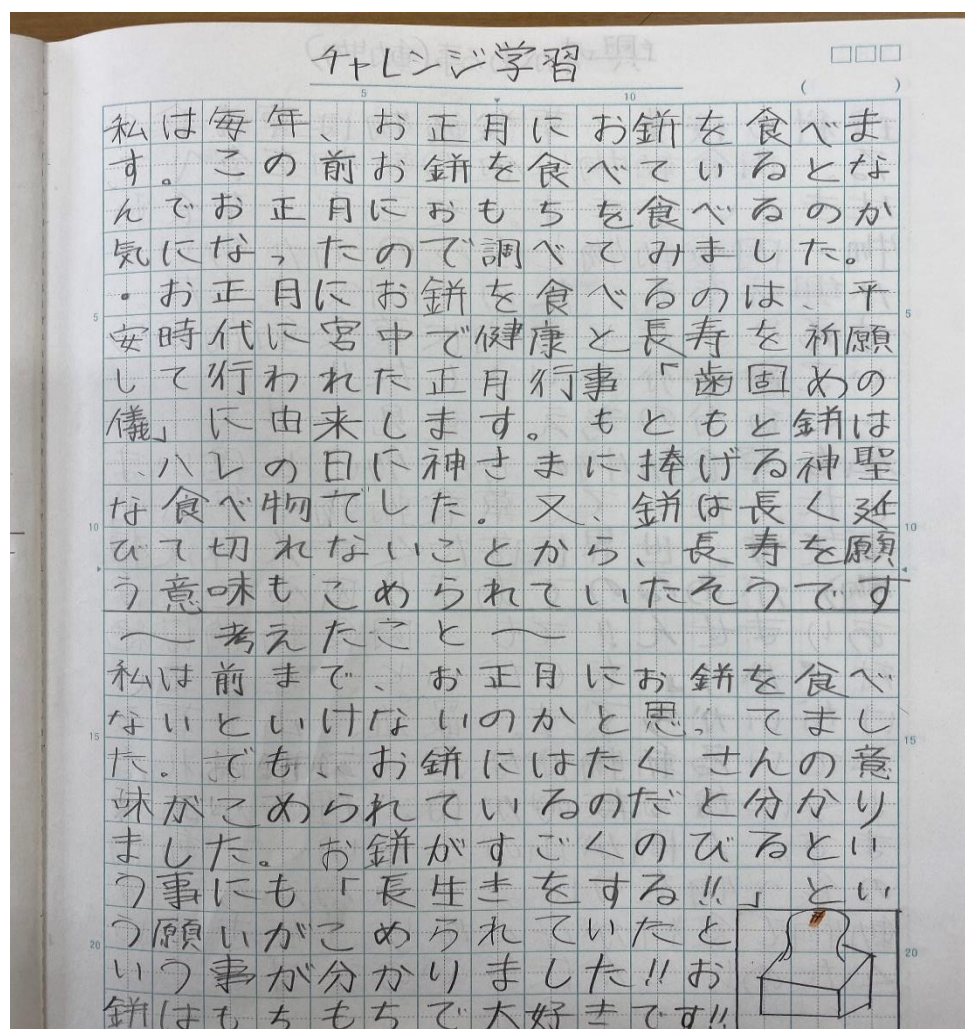 チャレンジ学習
5
10
(　　)
私は毎年、お正月にお餅を食べま
す。この前お餅を食べているとな
んでお正月におもちを食べるのか
気になったので調べてみました。
・お正月にお餅を食べるのは、平
5
5
安時代に宮中で健康と長寿を祈願
して行われた正月行事「歯固めの
儀」に由来します。もともと餅は
、ハレの日に神さまに捧げる神聖
な食べ物でした。又、餅は長く延
10
10
びて切れないことから、長寿を願
う意味もこめられていたそうです
〜考えたこと〜
私は前まで、お正月にお餅を食べ
ないといけないのかと思ってまし
15
15
た。でも、お餅にはたくさんの意
味がこめられているのだと分かり
ました。お餅がすごくのびるとい
う事にも「長生きをする!!」とい
う願いがこめられていたと
20
20
いう事が分かりました!!お
餅はもちもちで大好きです!!